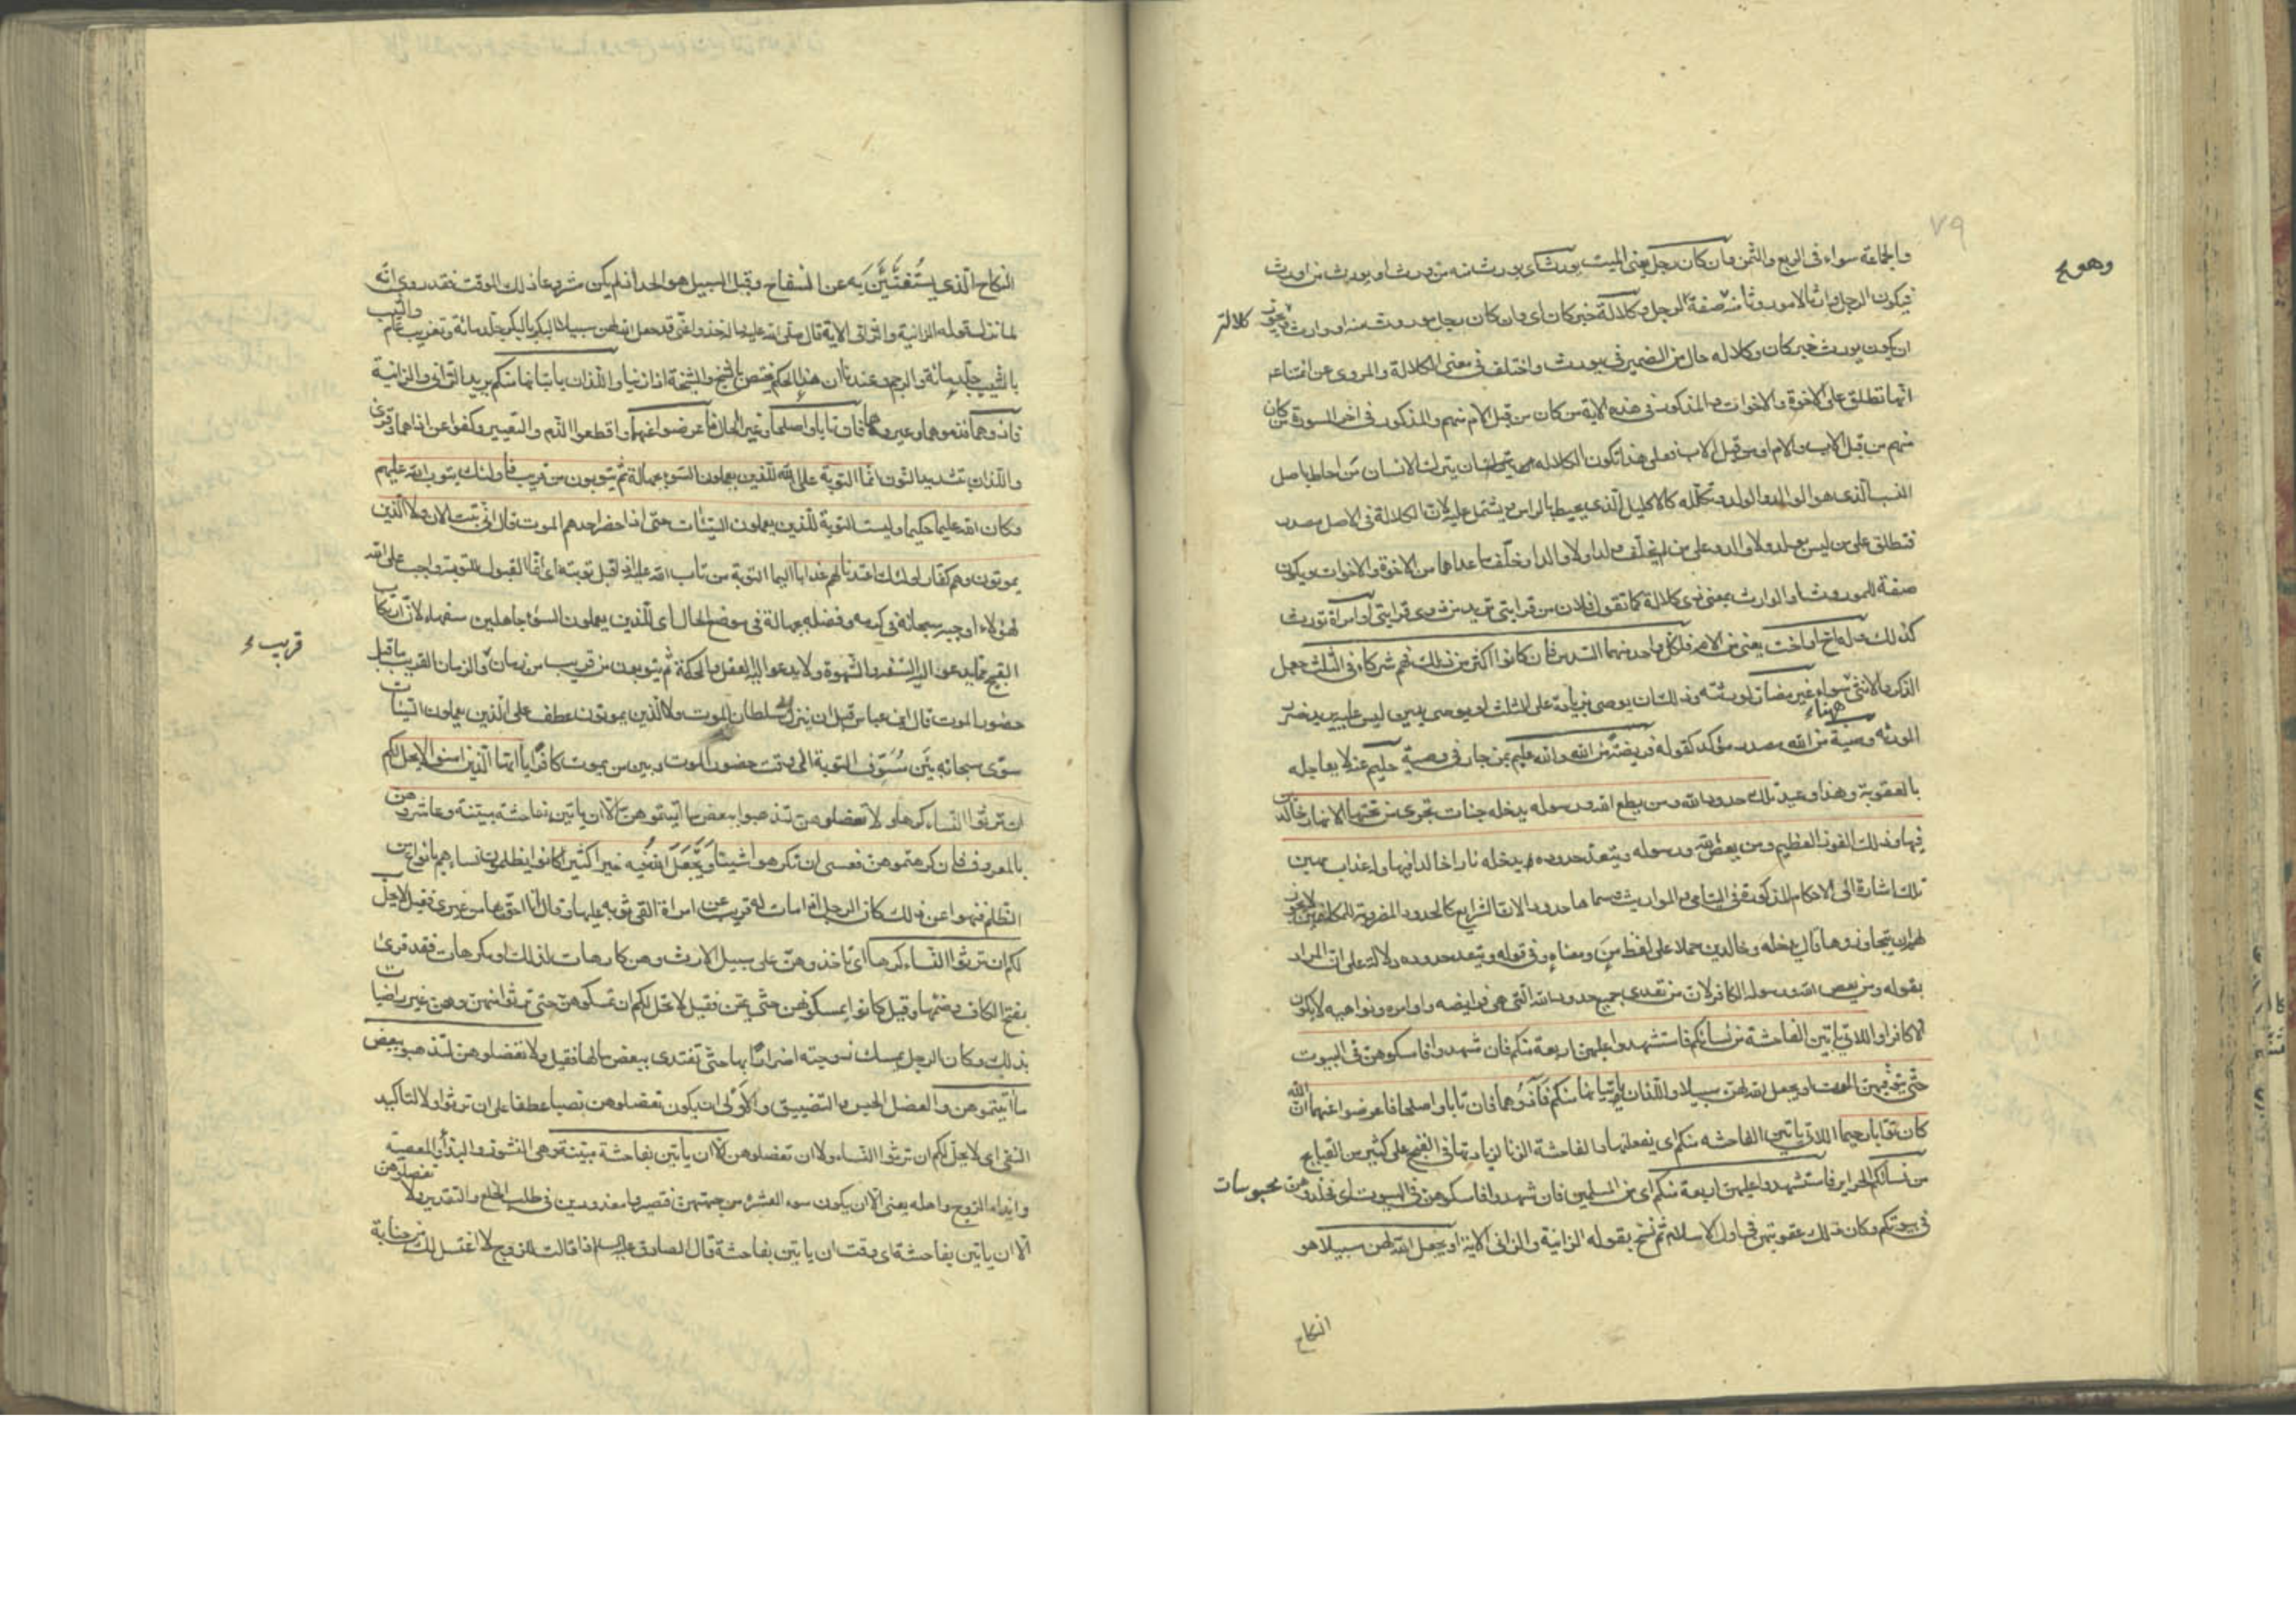 ٧٩
والجماعة سواء فى الربع والثمن وان كان رجل يعنى الميت يورث اى يورث منه من ورث او يورث من اورث
فيكون الرجل وارثا لا موروثا منه صفة لرجل وكلالة خبر كان اى وان كان رجل موروث منه او وارث
كلالة
ان يكون يورث خبر كان وكلاله حال من الضمير فى يورث واختلف فى معنى الكلالة والمروى عن ائمتنا ع
انها تطلق على الاخوة والاخوات والمذكور فى هذه الاية من كان من قبل الام منهم والمذكور فى اخر السورة من كان
منهم من قبل الاب والام او من قبل الاب فعلى هذا تكون الكلاله من احاط باصل
النسب الذى هو الوالد والولد وتكلله كالاكليل الذى يحيط بالراس ويشتمل عليه لان الكلالة فى الاصل مصدر
فتطلق على من ليس بولد ولا والد وعلى من لم يخلف ولدا ولا والدا وخلف ما عداهما من الاخوة والاخوات ويكون
صفة للموروث او الوارث بمعنى ذى كلالة كما تقول فلان من قرابتى تريد من ذوى قرابتى او امراة تورث
كذلك وله اخ او اخت يعنى من الام فلكل واحد منهما السدس فان كانوا اكثر من ذلك فهم شركاء فى الثلث جعل
الذكر والانثى ههنا سواء غير مضار لورثته وذلك ان يوصى بزيادة على الثلث او يوصى بدين وليس عليه يريد ضرر
الورثه وصية من الله مصدر مؤكد كقوله فريضة من الله والله عليم بمن جار فى وصية حليم عنه لا يعاجله
بالعقوبة وهذا وعيد تلك حدود الله ومن يطع الله ورسوله يدخله جنات تجرى من تحتها الانهار خالدين
فيها وذلك الفوز العظيم ومن يعص الله ورسوله ويتعد حدوده يدخله نارا خالدا فيها وله عذاب مهين
تلك اشارة الى الاحكام المذكورة فى اليتامى والمواريث وسماها حدودا لان الشرايع كالحدود المضروبة للمكلفين لا يجوز
لهم ان يتجاوزوها قال يدخله وخالدين حملا على لفظ من ومعناه وفى قوله ويتعد حدوده دلالة على ان المراد
بقوله ومن يعص الله ورسوله الكافر لان من تعدى جميع حدود الله التى هى فرايضه واوامره ونواهيه لا يكون
الا كافرا واللاتى ياتين الفاحشة من نسائكم فاستشهدوا عليهن اربعة منكم فان شهدوا فامسكوهن فى البيوت
حتى يتوفيهن الموت او يجعل الله لهن سبيلا واللذان ياتيانها منكم فآذوهما فان تابا واصلحا فاعرضوا عنهما ان الله
كان توابا رحيما اللاتى ياتين الفاحشه منكم اى يفعلنها والفاحشة الزنا لزيادتها فى القبح على كثير من القبايح
من نسائكم الحراير فاستشهدوا عليهن اربعة منكم اى من المسلمين فان شهدوا فامسكوهن فى البيوت اى فخلدوهن محبوسات
فى بيوتكم وكان ذلك عقوبتهن فى اول الاسلام ثم نسخ بقوله الزانية والزانى الاية او يجعل الله لهن سبيلا هو
النكاح
النكاح الذى يستغنين به عن السفاح وقيل السبيل هو الحد اذ لم يكن مشروعا ذلك الوقت فقد روى انه
لما نزل قوله الزانية والزانى الاية قال صلى الله عليه واله خذوا عنى قد جعل الله لهن سبيلا البكر بالبكر جلد مائة وتغريب عام والثيب
بالثيب جلد مائة والرجم وعندنا ان هذا الحكم مختص بالشيخ والشيخة اذا زنيا واللذان ياتيانها منكم يريد الزانى والزانية
فاذوهما فذموهما وعيروهما فان تابا واصلحا وغيرا الحال فاعرضوا عنهما واقطعوا الذم والتعيير وكفوا عن اذاهما وقرئ
واللذان بتشديد النون انما التوبة على الله للذين يعملون السوء بجهالة ثم يتوبون من قريب فاولئك يتوب الله عليهم
وكان الله عليما حكيما وليست التوبة للذين يعملون السيئات حتى اذا حضر احدهم الموت قال انى تبت الان ولا الذين
يموتون وهم كفار اولئك اعتدنا لهم عذابا اليما التوبة من تاب الله عليه اذا قبل توبته اى انما القبول للتوبة واجب على الله
لهؤلاء اوجبه سبحانه فى كرمه وفضله بجهالة فى موضع الحال اى الذين يعملون السوء جاهلين سفهاء لان ارتكاب
القبيح مما يدعو اليه السفه والشهوة ولا يدعو اليه العقل والحكمة ثم يتوبون من قريب من زمان قريب والزمان القريب ما قبل
حضور الموت قال ابن عباس قبل ان ينزل به سلطان الموت ولا الذين يموتون عطف على الذين يعملون السيئات
سوى سبحانه بين مسوف التوبة الى وقت حضور الموت وبين من يموت كافرا يا ايها الذين امنوا لا يحل لكم
ان ترثوا النساء كرها ولا تعضلوهن لتذهبوا ببعض ما اتيتموهن الا ان ياتين بفاحشة مبينة وعاشروهن
بالمعروف فان كرهتموهن فعسى ان تكرهوا شيئا ويجعل الله فيه خيرا كثيرا كانوا يظلمون نساءهم بانواع من
الظلم فنهوا عن ذلك كان الرجل اذا مات له قريب عن امراة القى ثوبه عليها وقال انا احق بها من غيرى فقيل لا يحل
لكم ان ترثوا النساء كرها اى تاخذوهن على سبيل الارث وهن كارهات لذلك او مكرهات فقد قرئ
بفتح الكاف وضمها وقيل كانوا يمسكونهن حتى يمتن فقيل لا يحل لكم ان تمسكوهن حتى ترثوا منهن وهن غير راضيات
بذلك وكان الرجل يمسك زوجته اضرارا بها حتى تفتدى ببعض مالها فقيل ولا تعضلوهن لتذهبوا ببعض
ما آتيتموهن والعضل الحبس والتضييق والاولى ان يكون تعضلوهن نصبا عطفا على ان ترثوا ولا لتاكيد
النفى اى لا يحل لكم ان ترثوا النساء ولا ان تعضلوهن الا ان ياتين بفاحشة مبينة وهى النشوز والبذاء والمعصية
وايذاء الزوج واهله يعنى الا ان يكون سوء العشرة من جهتهن فتصيروا معذورين فى طلب الخلع والتقدير ولا تعضلوهن
الا ان ياتين بفاحشة اى وقت ان ياتين بفاحشة قال الصادق عليه السلام اذا قالت للزوج لا اغتسل لك من جنابة
قريب